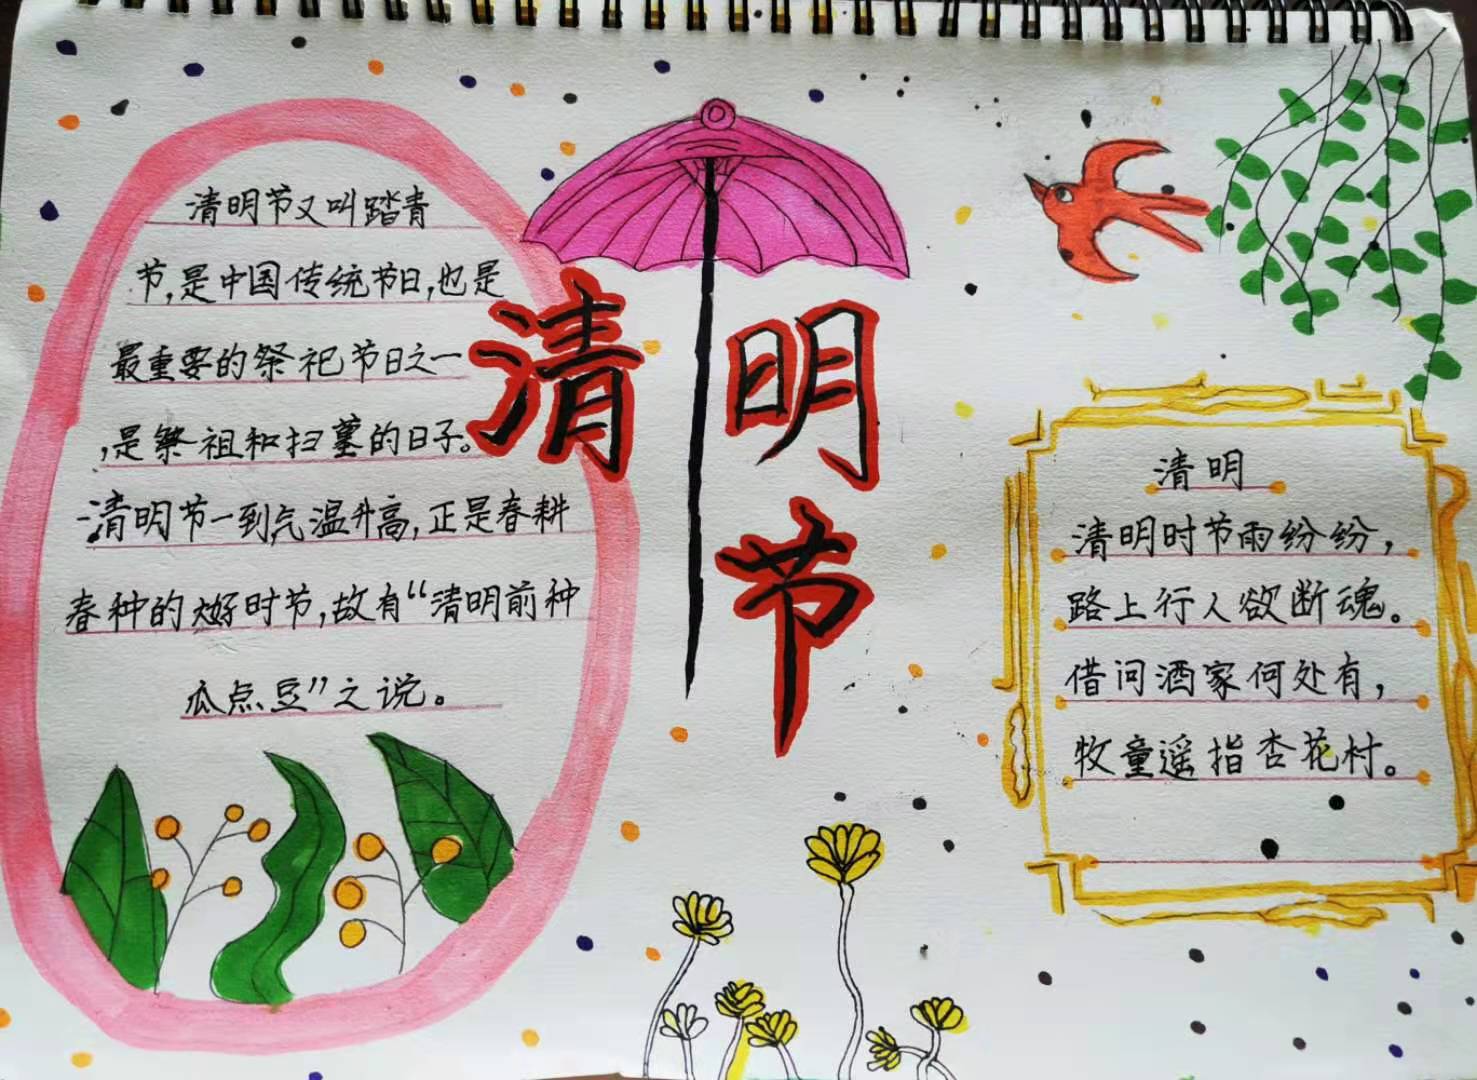 清明节又叫踏青
节,是中国传统节日,也是
最重要的祭祀节日之一
,是祭祖和扫墓的日子。
清明节一到气温升高,正是春耕
春种的大好时节,故有“清明前种
瓜点豆”之说。
清明节
清明
清明时节雨纷纷,
路上行人欲断魂。
借问酒家何处有,
牧童遥指杏花村。